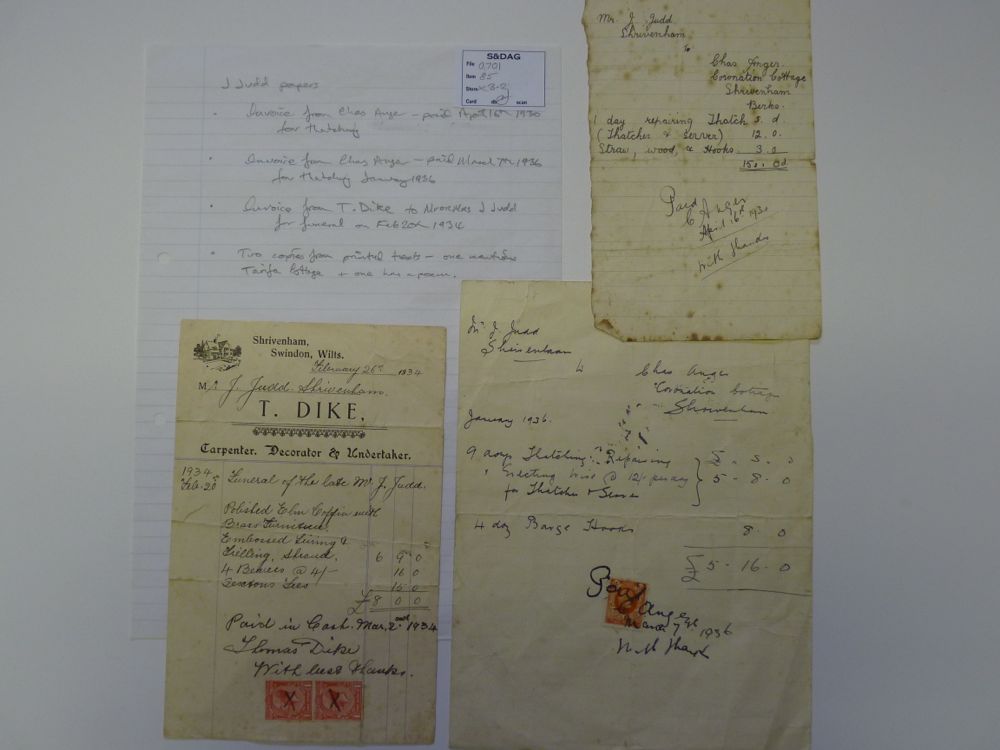 J Judd papers
S&DAG
File 0701
Item 85
Store
Card
scan
Invoice from Chas Anger - paid April 16th 1930
for thatching
Invoice from Chas Anger - paid March 7th 1936
for thatching January 1936
Invoice from T. Dike to J Judd
for funeral on Feb 20th 1934
Two copies from printed texts - one mentions
Cottage + one has a poem.
Mr J. Judd
Shrivenham
To
Chas Anger.
Coronation Cottage
Shrivenham
Berks.
1 day repairing Thatch s. d.
(Thatcher & Server) 12. 0.
Straw, wood, & Hooks. 3. 0
15s. 0d.
Paid
C Anger
April 16th 1930
With thanks
Shrivenham,
Swindon, Wilts.
February 26th 1934
M J. Judd Shrivenham.
T. DIKE,
Carpenter, Decorator & Undertaker.
1934
Feb. 20 Funeral of the late Mr J. Judd.
Polished Elm Coffin with
Brass Furniture.
Embossed Lining &
Frilling, Shroud. 6 9 0
4 Bearers @ 4/- 16 0
Sextons Fees 15 0
£8 0 0
Paid in Cash. Mar. 2nd 1934
Thomas Dike
With best thanks.
X X
Mr J. Judd
Shrivenham
Chas Anger
Coronation Cottage
Shrivenham
January 1936.
9 days Thatching Repairing £ s.
@ 12/- per day 5 - 8 . 0
for Thatcher & Server
4 day Barge Hooks 8 . 0
£5 - 16 - 0
Paid
C Anger
March 7th 1936
With thanks